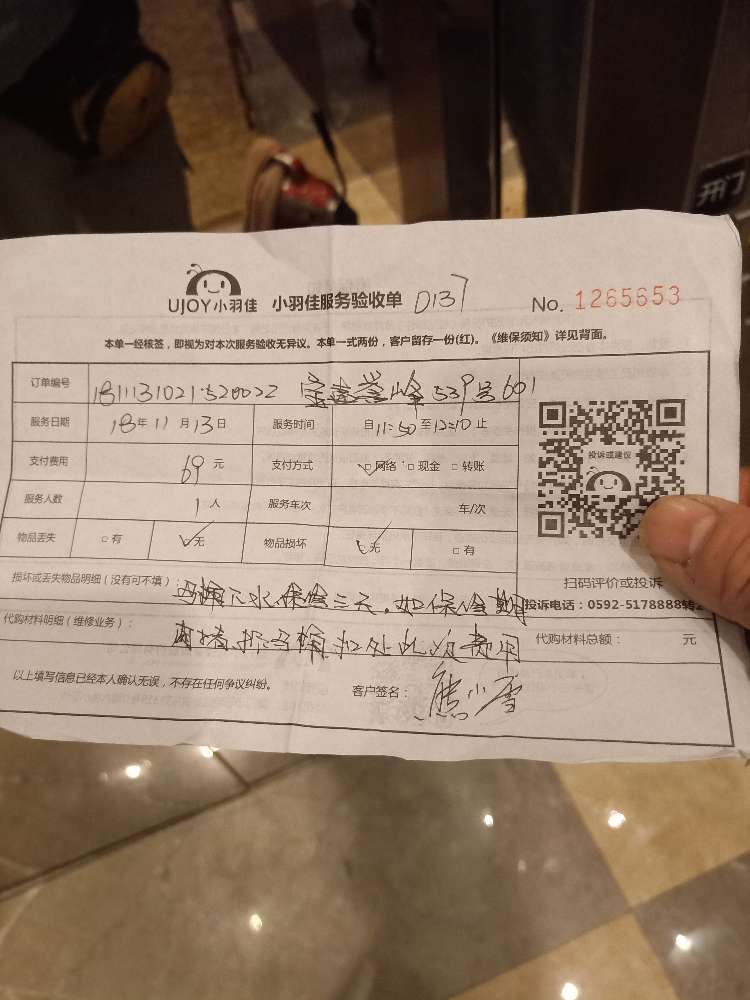 开门
UJOY小羽佳 小羽佳服务验收单 D137 No. 1265653
本单一经核签，即视为对本次服务验收无异议。本单一式两份，客户留存一份(红)。《维保须知》详见背面。
订单编号 539号601
服务日期 18年11月13日 服务时间 自11:50至12:10止
支付费用 69元 支付方式 □网络 □现金 □转账
服务人数 1人 服务车次 车/次
物品丢失 □有 无 物品损坏 无 □有
投诉或建议
扫码评价或投诉
投诉电话：0592-5178888转2
损坏或丢失物品明细（没有可不填）： 马桶下水保修三天.如保修期
代购材料明细（维修业务）： 再堵.拆马桶.扣处此次费用
代购材料总额： 元
以上填写信息已经本人确认无误，不存在任何争议纠纷。 客户签名： 熊小雪